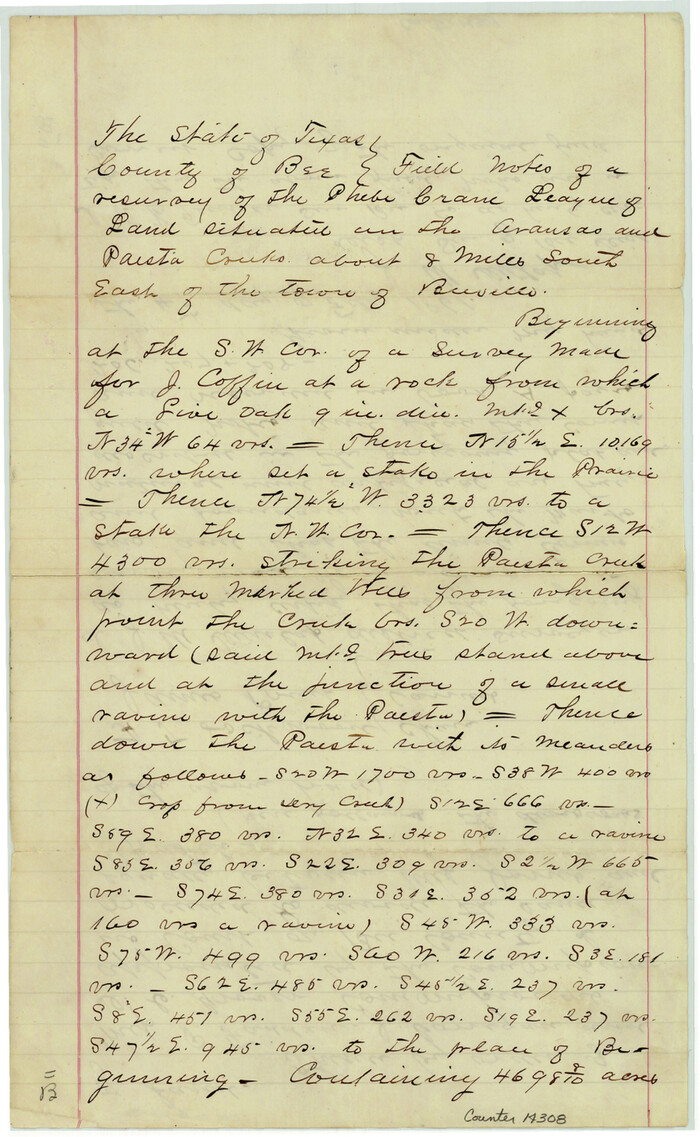 The State of Texas }
County of Bee } Field Notes of a
resurvey of the Phebe Crane League of
Land situated on the Aransas and
Paesta Creeks about 8 Miles South
East of the town of Beeville.
Beginning
at the S.W Cor. of a Survey made
for J. Coffin at a rock from which
a Live Oak 9 in. dia. mkd X brs.
N34°W 64 vrs. = Thence N15½ E. 10,169
vrs. where set a stake in the Prairie
= Thence N74½°W. 3323 vrs. to a
stake the N.W. Cor. = Thence S12W
4300 vrs. striking the Paesta Creek
at three marked trees from which
point the Creek brs. S20 W down=
ward (said mkd trees stand above
and at the junction of a small
ravine with the Paesta) = Thence
down the Paesta with its meanders
as follows - S20W 1700 vrs - S38W 400 vrs
(X) Crop from Creek) S12E 666 vrs -
S59 E. 380 vrs. N32 E. 340 vrs. to a ravine
S83E. 356 vrs. S22E. 309 vrs. S2½ W 665
vrs. - S74E. 380 vrs. S31E. 352 vrs. (at
160 vrs a ravine) S45 W. 333 vrs.
S75W. 499 vrs. S60 W. 216 vrs. S3E. 181
vrs. - S62E. 485 vrs. S45½ E. 237 vrs.
S8°E. 451 vrs. S55E. 262 vrs. S19E. 237 vrs.
S47½ E. 945 vrs. to the place of Be-
ginning - Containing 4698 8/10 acres
=
B
Counter 14308